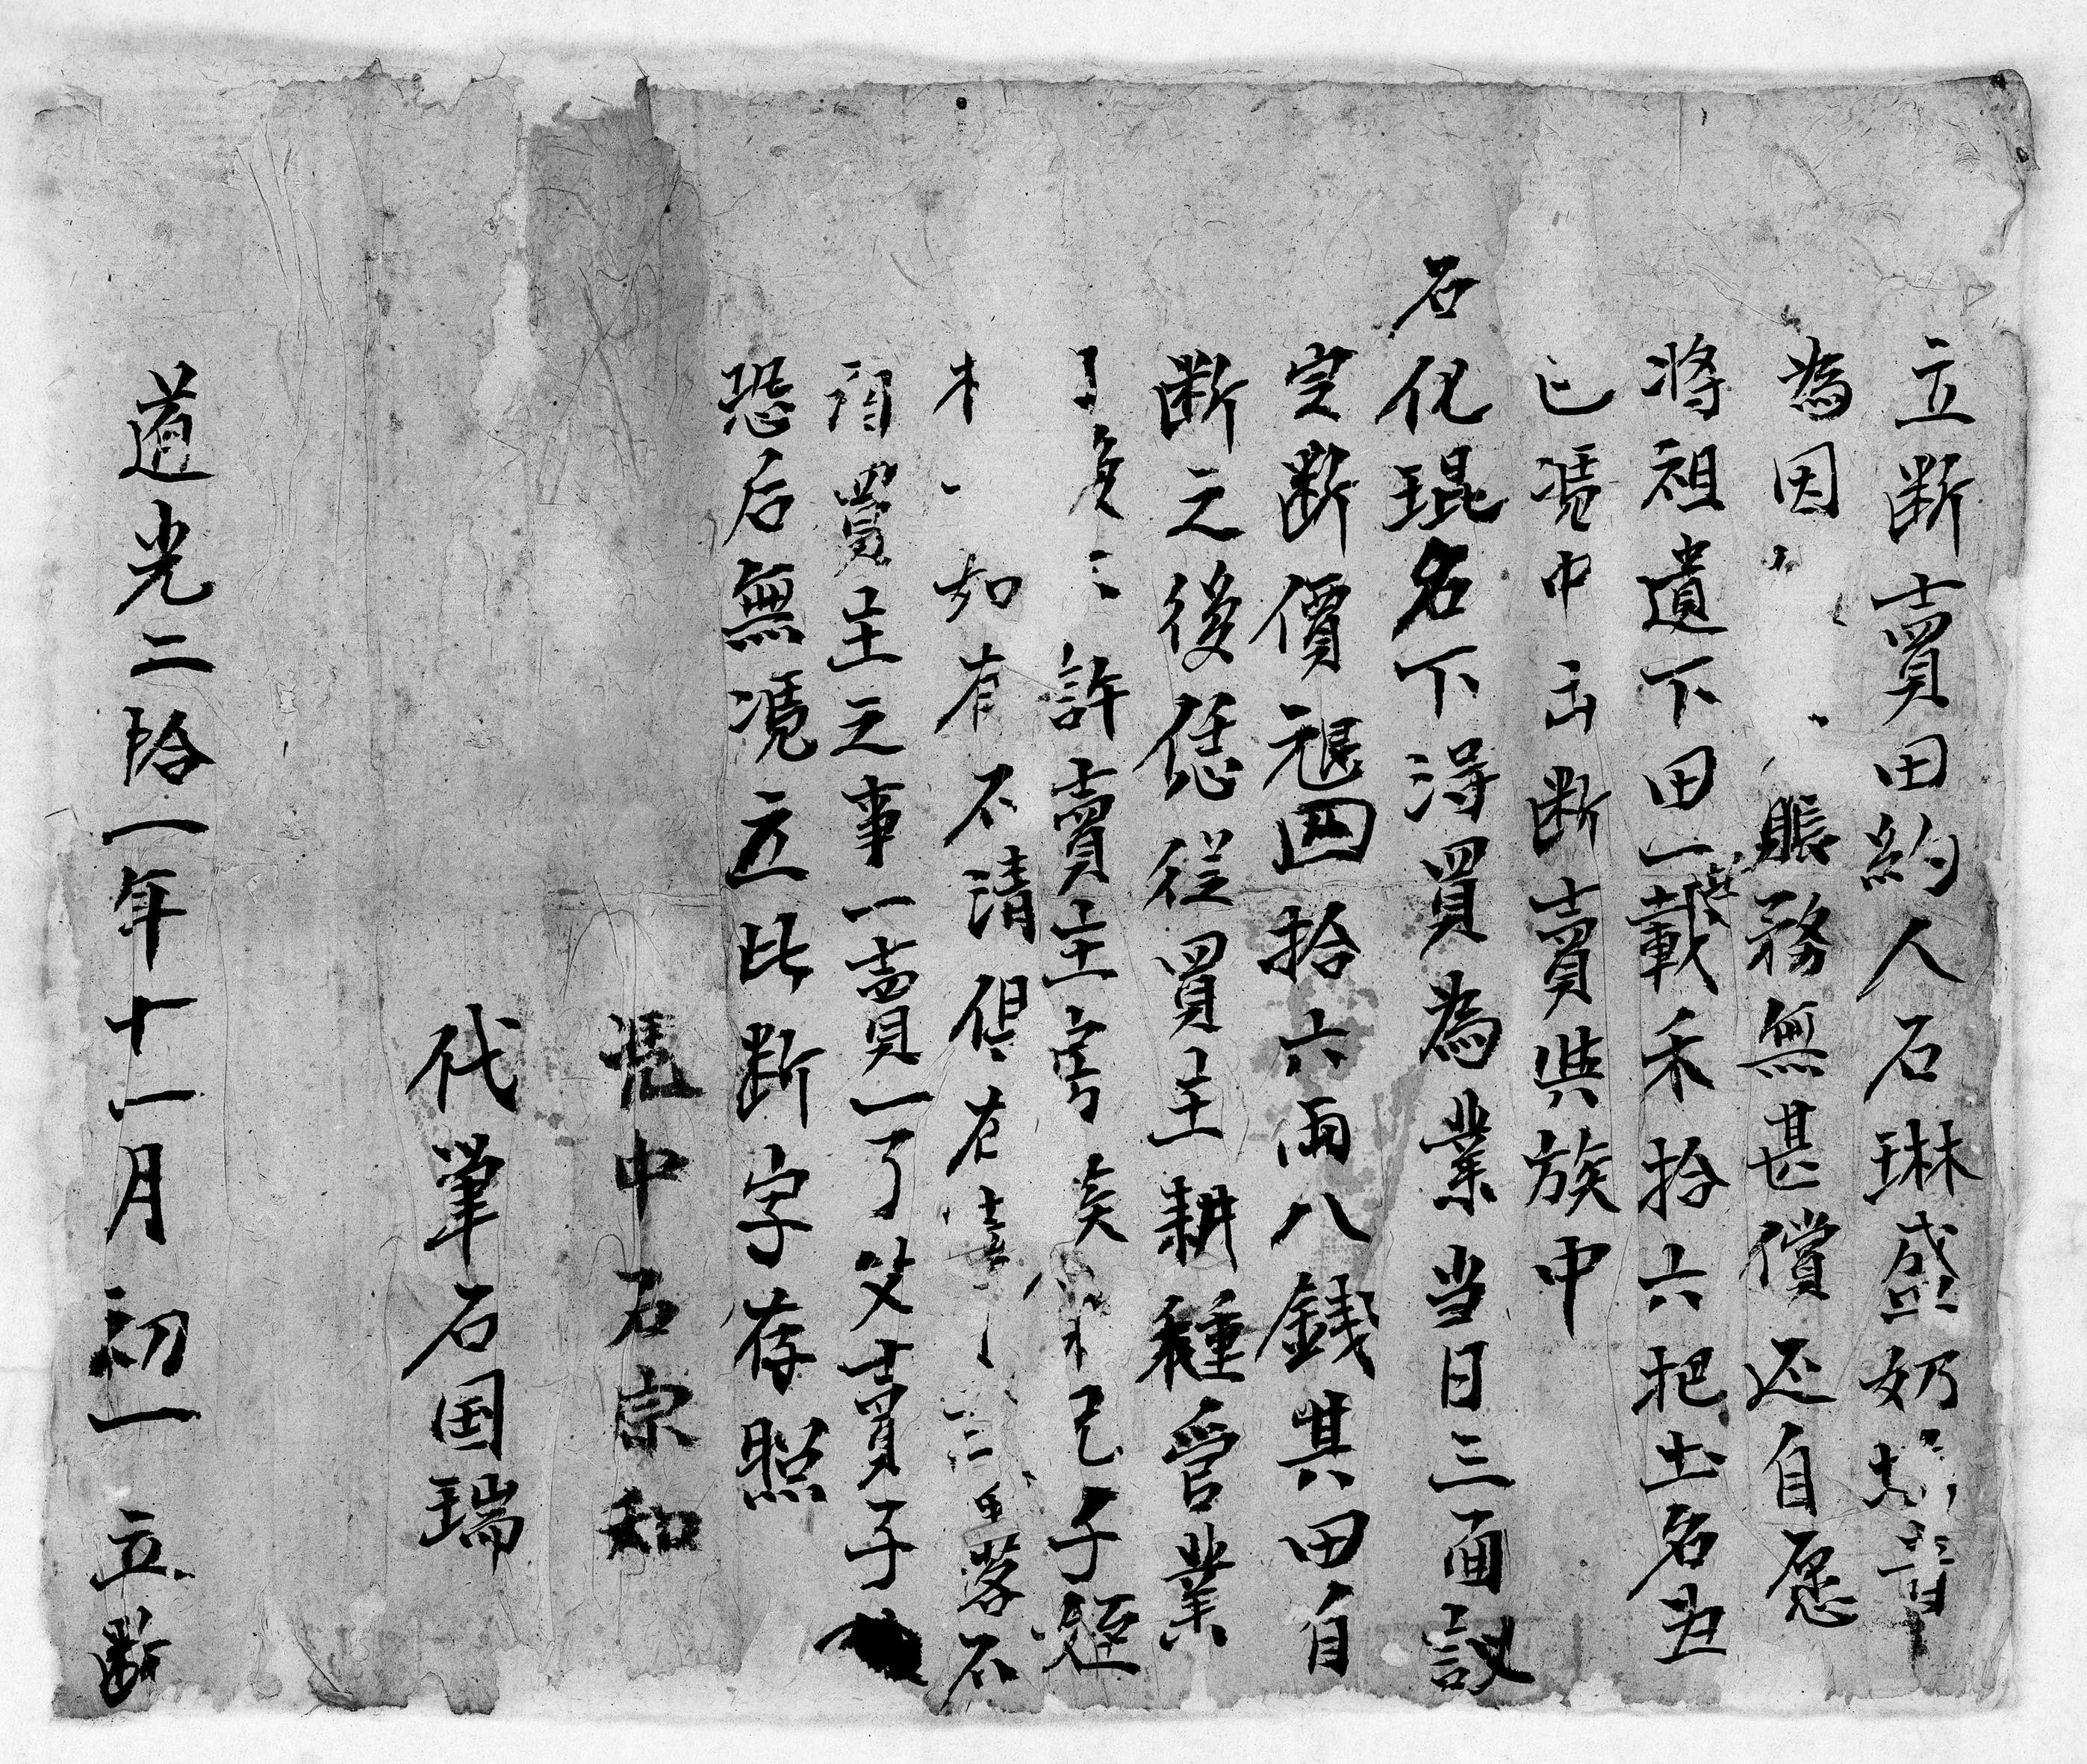 立断賣田約人石琳盛奶
為因賬務無甚償还自愿
將祖遺下田一載禾拾六把土名丑
已凴中出断賣與族中
石化琨名下淂買為業当日三面議
定断價艮四拾六兩八錢其田自
断之後恁從買主耕種管業
許賣主房己子姪
如有不清倶有賣不
買主之事一賣一了父賣子
恐后無凴立此断字存照
凴中石宗和
代筆石国瑞
道光二拾一年十一月初一立断